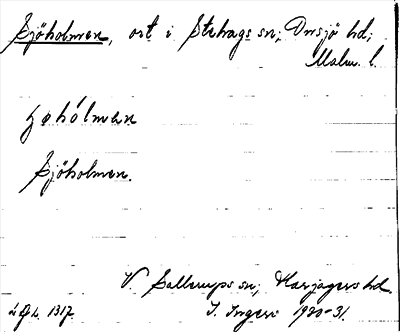 Sjöholmen, ort i Stehags sn; Onsjö hd;
Malm. l.
ʃøhólmεn
Sjöholmen.
V. Sallerups sn; Harjagers hd.
L.O.L. 1317. I. Ingers 1930-31.